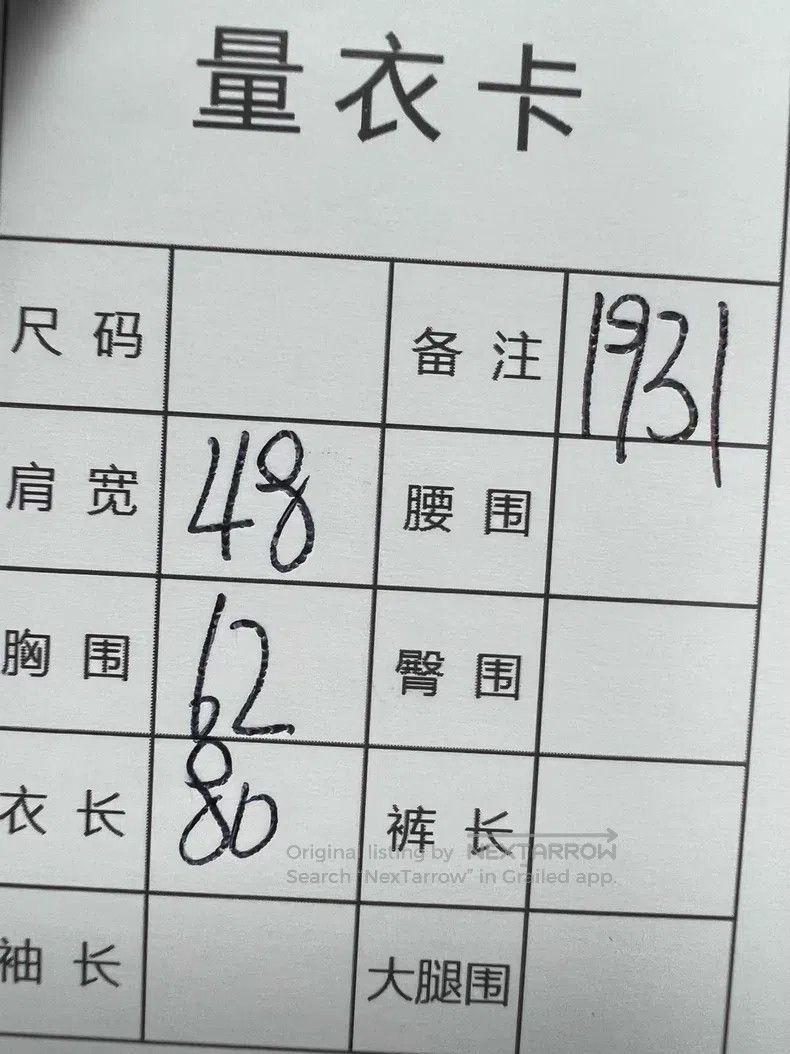 量衣卡
尺码 备注 1931
肩宽 48 腰围
胸围 62 臀围
衣长 80 裤长
Original listing by NEXTARROW
Search "NexTarrow" in Grailed app.
袖长 大腿围